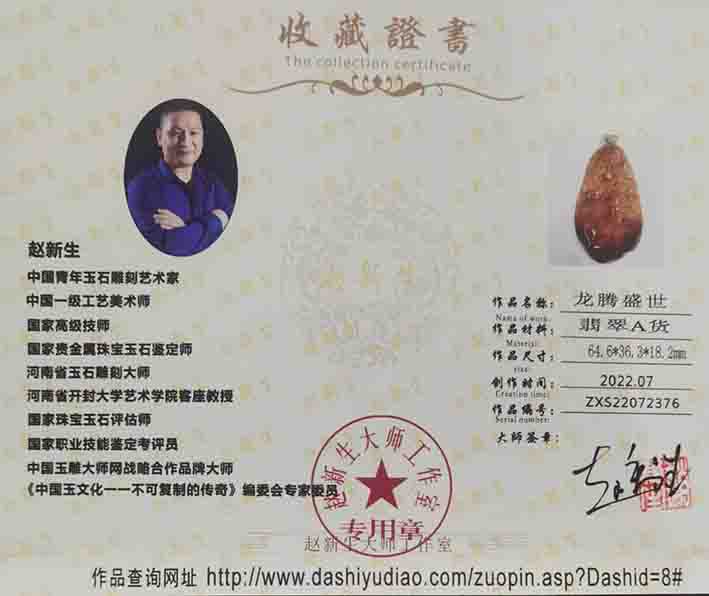 收藏證書
The collection certificate
赵新生
中国青年玉石雕刻艺术家
中国一级工艺美术师
国家高级技师
国家贵金属珠宝玉石鉴定师
河南省玉石雕刻大师
河南省开封大学艺术学院客座教授
国家珠宝玉石评估师
国家职业技能鉴定考评员
中国玉雕大师网战略合作品牌大师
《中国玉文化一一不可复制的传奇》编委会专家委员
赵新生
作品名称：龙腾盛世
Name of work:
作品材料：翡翠A货
Material:
作品尺寸：64.6*36.3*18.2mm
size:
创作时间：2022.07
Creation time:
作品编号：ZXS22072376
Serial number:
大师签章：
赵新生大师工作室
专用章
赵新生大师工作室
作品查询网址 http://www.dashiyudiao.com/zuopin.asp?Dashid=8#